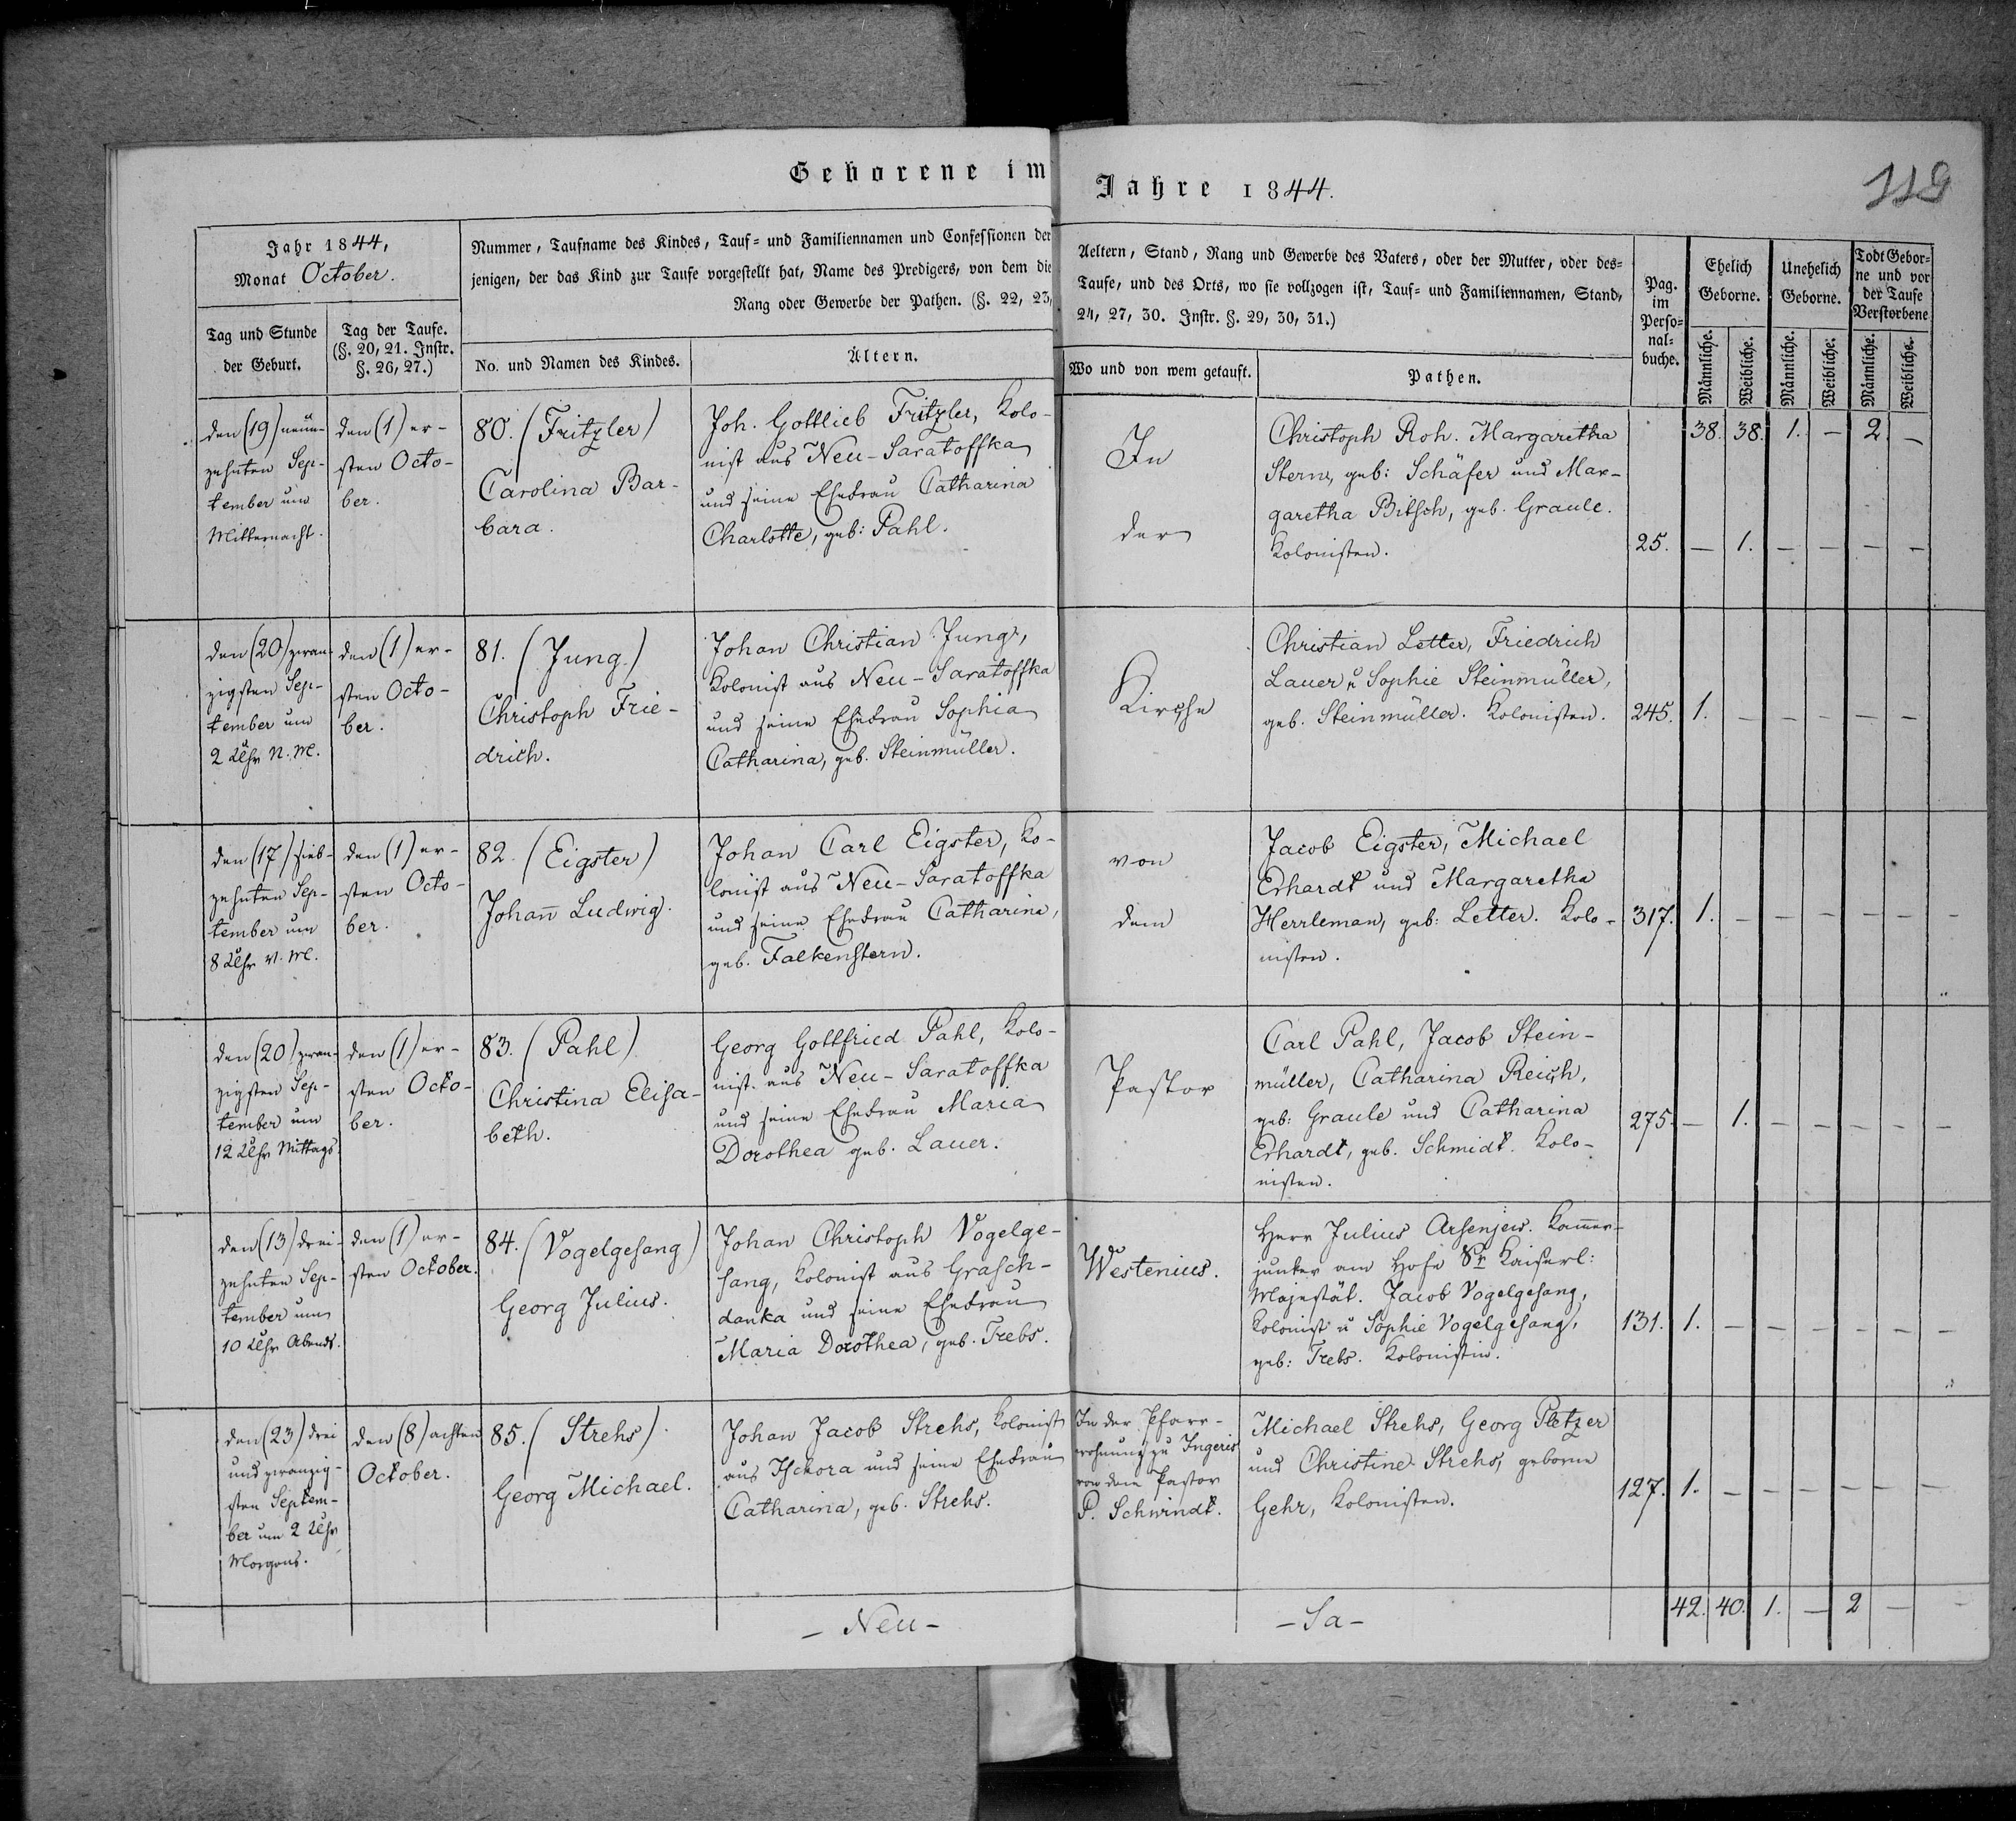 Geborene im Jahre 1844.
119
Jahr 1844,
Monat October.
Tag und Stunde
der Geburt.
Tag der Taufe.
(§. 20, 21. Instr.
§. 26, 27.)
Nummer, Taufname des Kindes, Tauf- und Familiennamen und Confessionen der
jenigen, der das Kind zur Taufe vorgestellt hat, Name des Predigers, von dem die
Rang oder Gewerbe der Pathen. (§. 22, 23,
No. und Namen des Kindes.
Ältern.
Aeltern, Stand, Rang und Gewerbe des Vaters, oder der Mutter, oder des-
Taufe, und des Orts, wo sie vollzogen ist, Tauf- und Familiennamen, Stand,
24, 27, 30. Instr. §. 29, 30, 31.)
Wo und von wem getauft.
Pathen.
Pag.
im
Perso-
nal-
buche.
Ehelich
Geborne.
Unehelich
Geborne.
Todt Gebor-
ne und vor
der Taufe
Verstorbene
Männliche.
Weibliche.
Männliche.
Weibliche.
Männliche.
Weibliche.
38. 38. 1. — 2. —
den (19) neun-
zehnten Sep-
tember um
Mitternacht.
den (1) er-
sten Octo-
ber.
80. (Fritzler)
Carolina Bar-
bara.
Joh. Gottlieb Fritzler, Kolo-
nist aus Neu-Saratoffka
und seine Ehefrau Catharina
Charlotte, geb: Pahl.
In
der
Christoph Roh. Margaretha
Stern, geb: Schäfer und Mar-
garetha Bitsch, geb. Graule.
Kolonisten.
25. — 1. — — — —
den (20) zwan-
zigsten Sep-
tember um
2 Uhr N. M.
den (1) er-
sten Octo-
ber.
81. (Jung.)
Christoph Frie-
drich.
Johan Christian Jung,
Kolonist aus Neu-Saratoffka
und seine Ehefrau Sophia
Catharina, geb. Steinmüller.
Kirche
Christian Letter, Friedrich
Lauer u Sophie Steinmüller,
geb. Steinmüller. Kolonisten.
245. 1. — — — — —
den (17) sieb-
zehnten Sep-
tember um
8 Uhr V. M.
den (1) er-
sten Octo-
ber.
82. (Eigster)
Johañ Ludwig.
Johan Carl Eigster, Ko-
lonist aus Neu-Saratoffka
und seine Ehefrau Catharina,
geb. Falkenstern.
von
dem
Jacob Eigster, Michael
Erhardt und Margaretha
Herrleman, geb: Letter. Kolo-
nisten.
317. 1. — — — — — —
den (20) zwan-
zigsten Sep-
tember um
12 Uhr Mittags.
den (1) er-
sten Octo-
ber.
83. (Pahl)
Christina Elisa-
beth.
Georg Gottfried Pahl, Kolo-
nist aus Neu-Saratoffka
und seine Ehefrau Maria
Dorothea geb. Lauer.
Pastor
Carl Pahl, Jacob Stein-
müller, Catharina Reich,
geb: Graule und Catharina
Erhardt, geb. Schmidt. Kolo-
nisten.
275. — 1. — — — — —
den (13) drei-
zehnten Sep-
tember um
10 Uhr Abends.
den (1) er-
sten October.
84. (Vogelgesang)
Georg Julius.
Johan Christoph Vogelge-
sang, Kolonist aus Grasch-
danka und seine Ehefrau
Maria Dorothea, geb. Trebs.
Westenius.
Herr Julius Arsenjew. Kammer-
junker am Hofe Sr Kaiserl:
Majestät. Jacob Vogelgesang,
Kolonist u Sophie Vogelgesang,
geb: Trebs. Kolonistin.
131. 1. — — — — — —
den (23) drei
und zwanzig-
sten Septem-
ber um 2 Uhr
Morgens.
den (8) achten
October.
85. (Strehs).
Georg Michael.
Johan Jacob Strehs, Kolonist
aus Ischora und seine Ehefrau
Catharina, geb. Strehs.
In der Pfarr-
wohnung zu Ingeris
von dem Pastor
P. Schwindt.
Michael Strehs, Georg Pletzer
und Christine Strehs, geborne
Gehr, Kolonisten.
127. 1. — — — — — —
— Neu —
— Sa —
42. 40. 1. — 2 — —